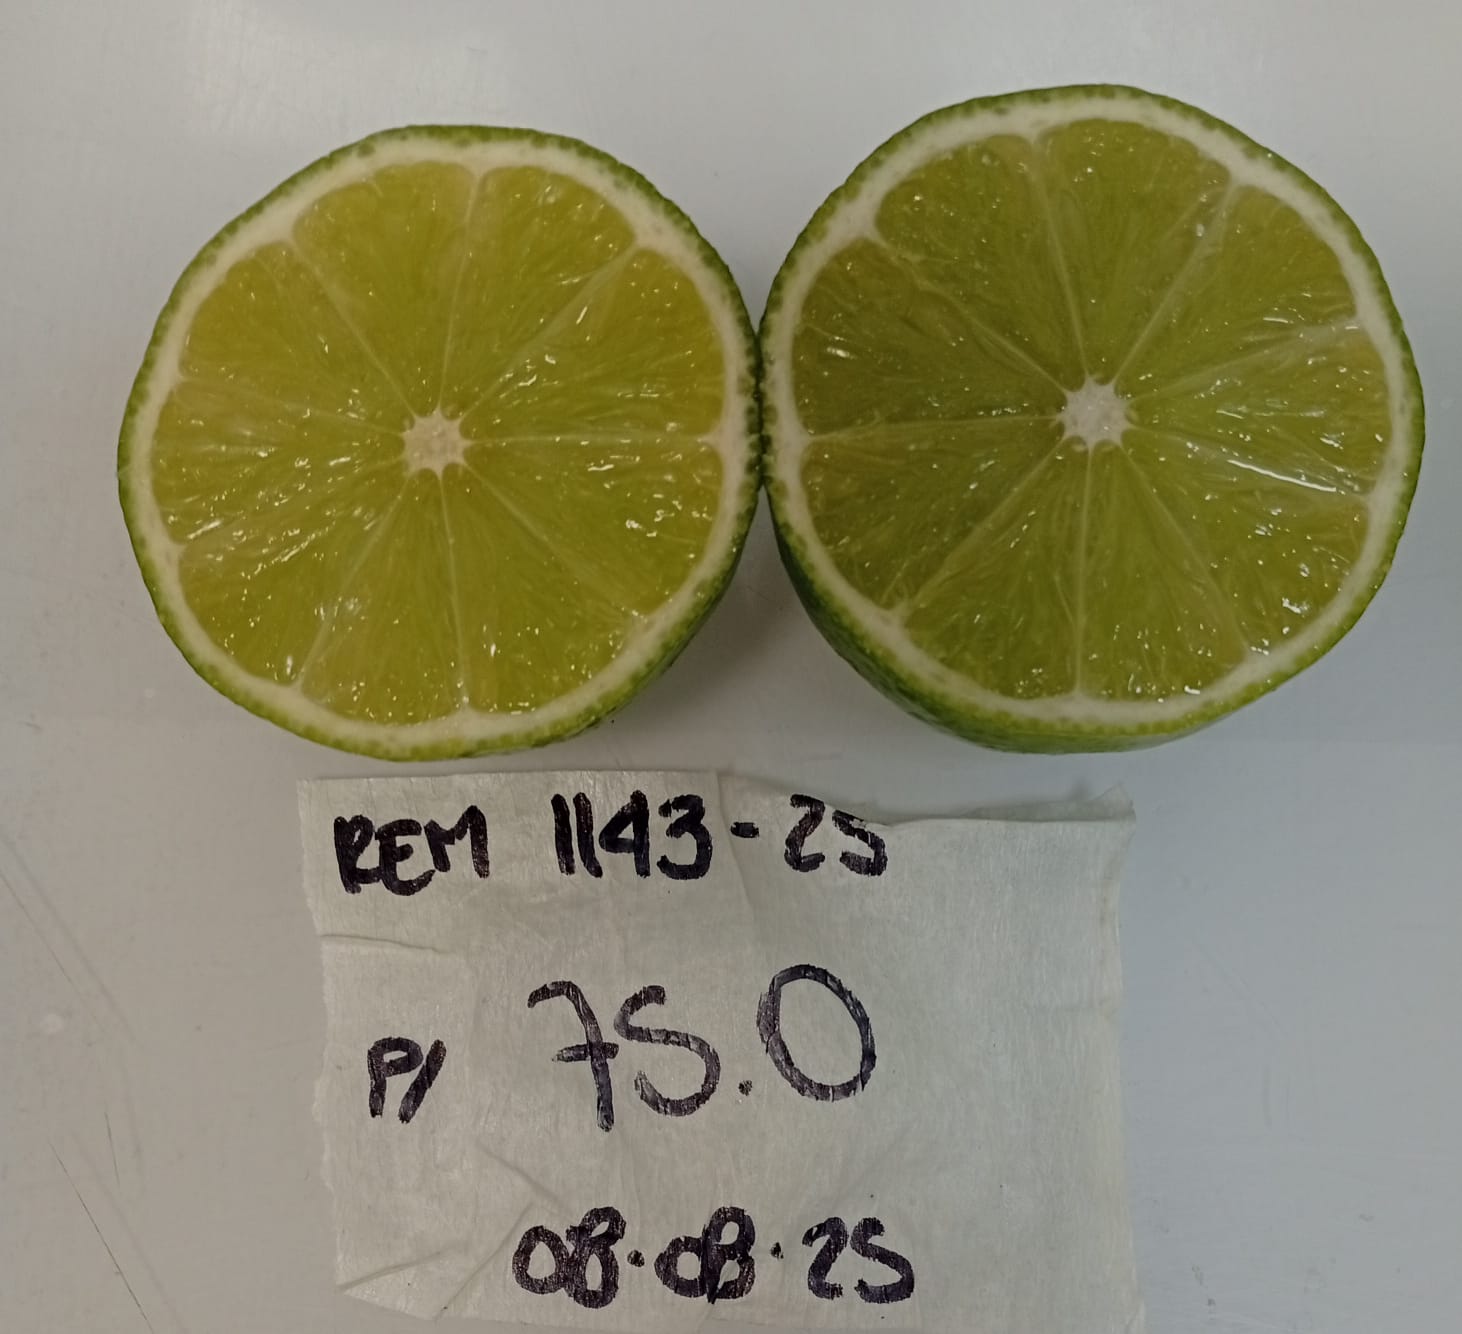 REM 1143-25
P/ 75.0
08.08.25